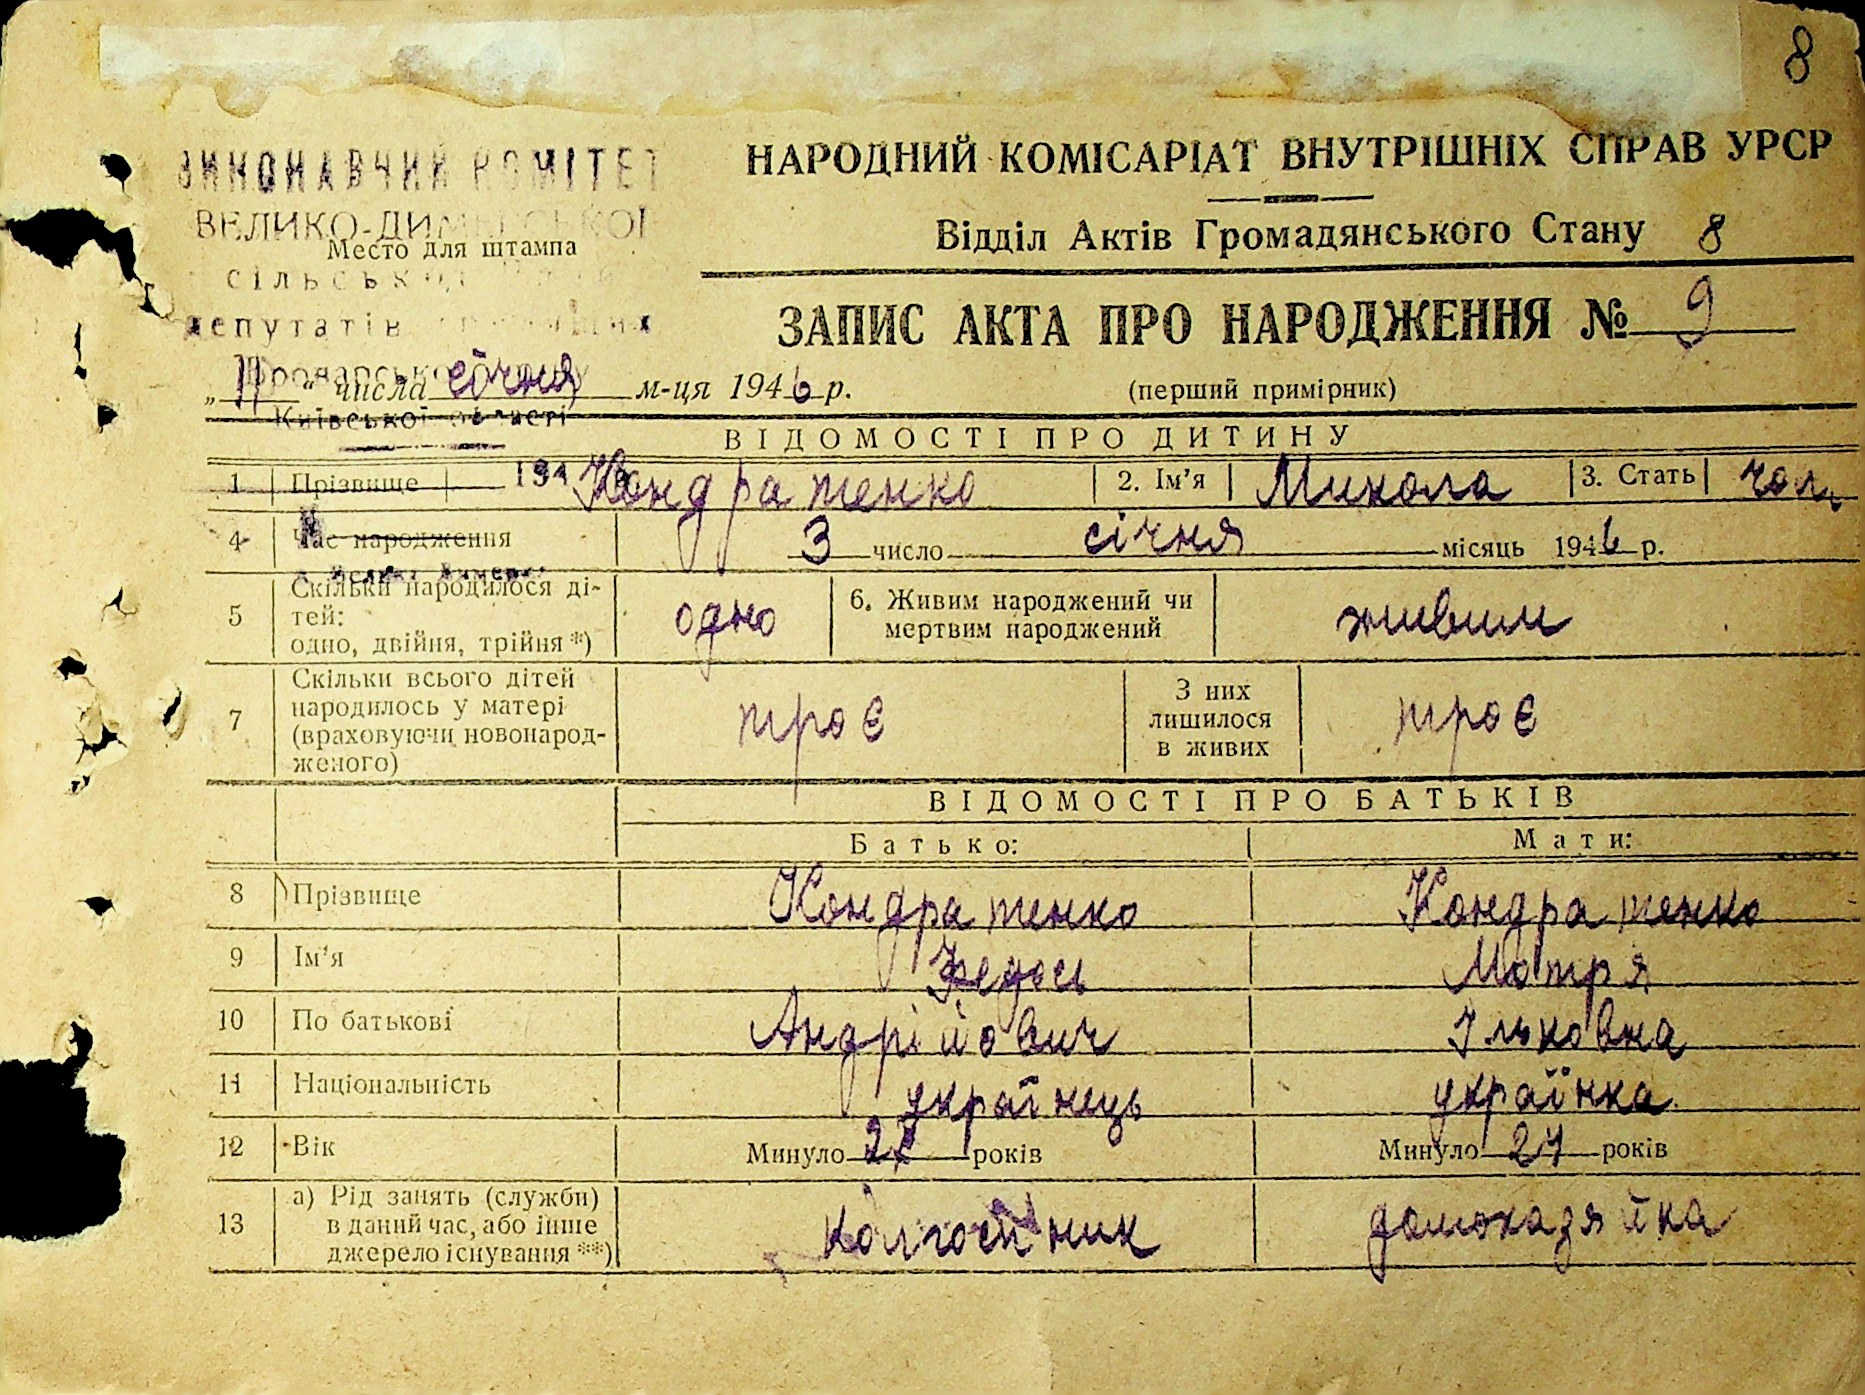 8
ВИКОНАВЧИЙ КОМІТЕТ
ВЕЛИКО-ДИМЕРСЬКОЇ
Место для штампа
депутатів
Київської області
194
НАРОДНИЙ КОМІСАРІАТ ВНУТРІШНІХ СПРАВ УРСР
Відділ Актів Громадянського Стану 8
ЗАПИС АКТА ПРО НАРОДЖЕННЯ № 9
„11“ числа січня м-ця 1946 р. (перший примірник)
ВІДОМОСТІ ПРО ДИТИНУ
1 Прізвище Кондратенко 2. Ім’я Микола 3. Стать чол.
4 Час народження 3 число січня місяць 1946 р.
5 Скільки народилося ді-
тей:
одно, двійня, трійня*) одно 6. Живим народжений чи
мертвим народжений живим
7 Скільки всього дітей
народилось у матері
(враховуючи новонарод-
женого) троє З них
лишилося
в живих троє
ВІДОМОСТІ ПРО БАТЬКІВ
Батько: Мати:
8 Прізвище Кондратенко Кондратенко
9 Ім’я Федось Мотря
10 По батькові Андрійович Ільковна
11 Національність українець українка.
12 Вік Минуло років Минуло 27 років
13 а) Рід занять (служби)
в даний час, або інше
джерело існування**) колгоспник домохазяйка